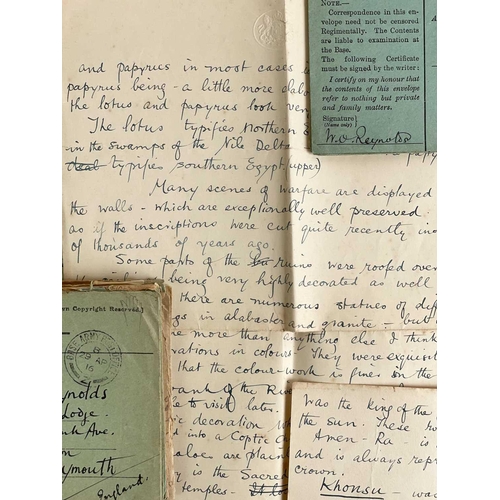 and papyrus in most cases
papyrus being - a little more elab
the lotus and papyrus look ver
The lotus typifies Northern
in the swamps of the Nile Delta
typifies southern Egypt (upper)
Many scenes of warfare are displayed
the walls - which are exceptionally well preserved
as if the inscriptions were cut quite recently in
of thousands of years ago.
Some parts of the ruins were roofed over
being very highly decorated as well
there are numerous statues of diff
gs in alabaster and granite - but
more than anything else I think
rations in colours. They were exquisit
that the colour-work is fines on the
bank of the River
to visit later.
decoration
into a Coptic
are plain
is the Sacred
temples -
NOTE.—
Correspondence in this en-
velope need not be censored
Regimentally. The Contents
are liable to examination at
the Base.
The following Certificate
must be signed by the writer:
I certify on my honour that
the contents of this envelope
refer to nothing but private
and family matters.
Signature
(Name only)
W.O. Reynolds
wn Copyright Reserved.]
AP
16
ynolds
Lodge.
Ave.
on
ymouth
England.
was the king of the
the sun. These
Amen-Ra- is
and is always repr
crown.
Khonsu - was